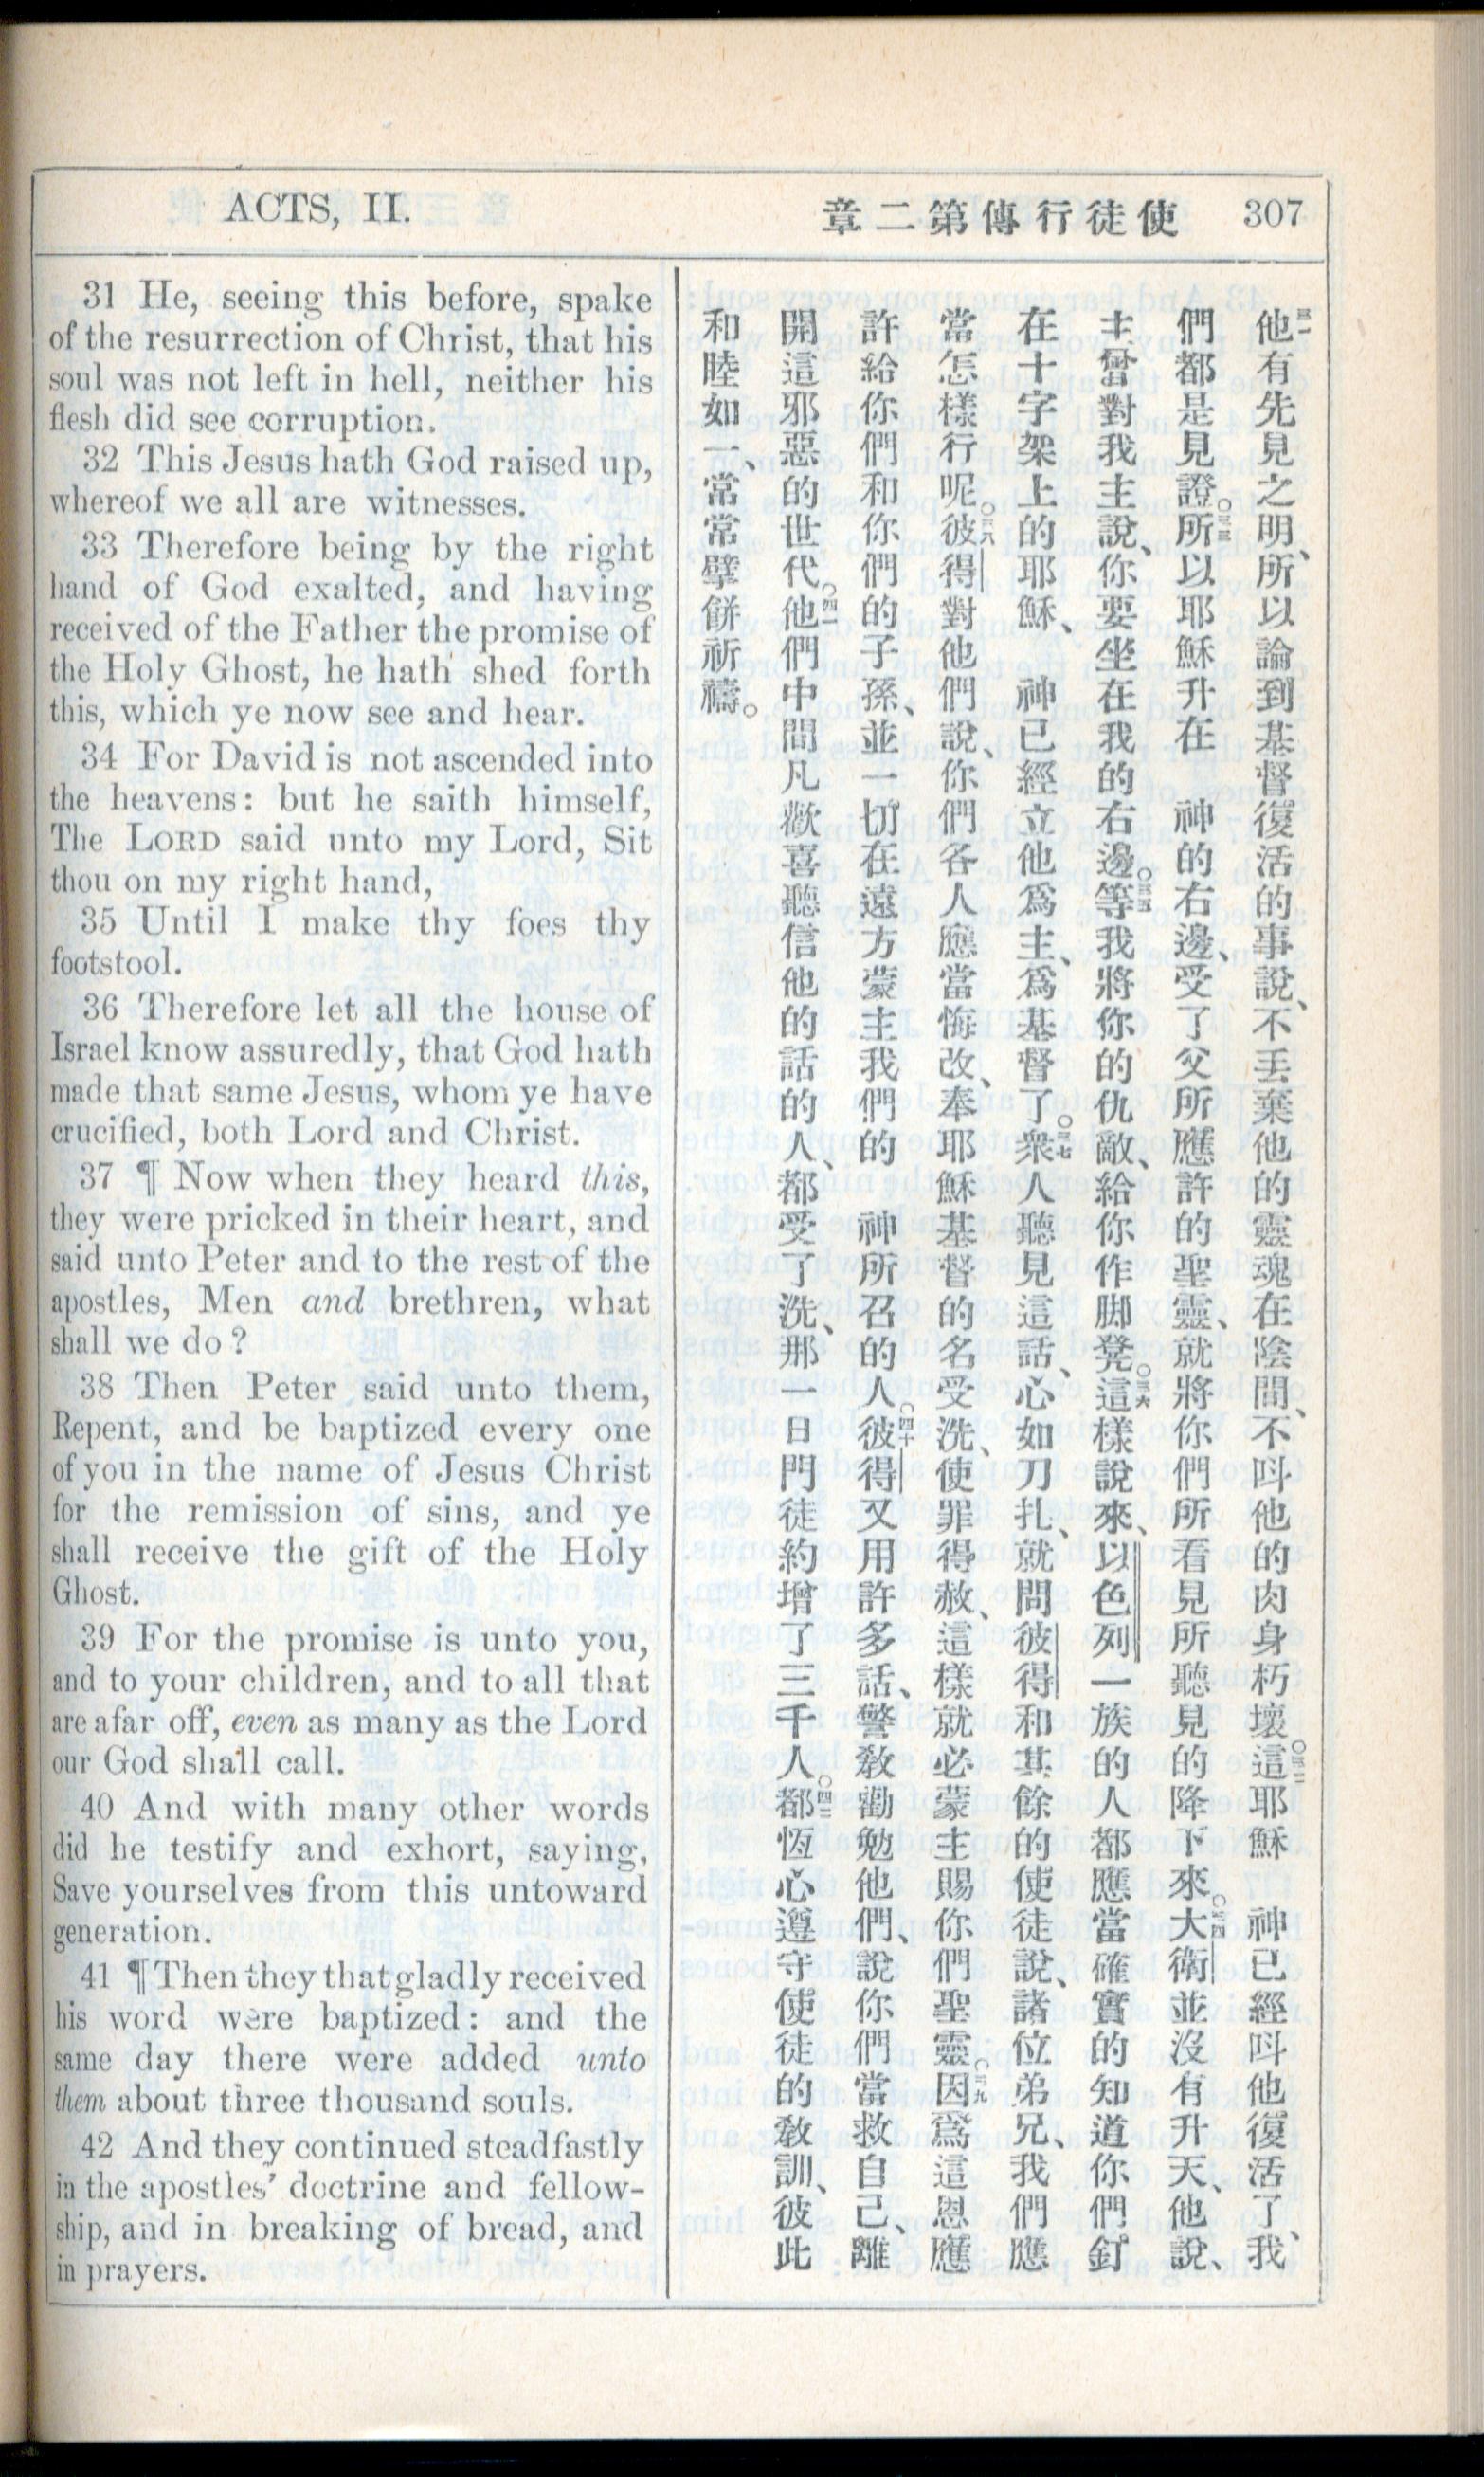 ACTS, II.
使徒行傳第二章
307
31 He, seeing this before, spake
of the resurrection of Christ, that his
soul was not left in hell, neither his
flesh did see corruption.
32 This Jesus hath God raised up,
whereof we all are witnesses.
33 Therefore being by the right
hand of God exalted, and having
received of the Father the promise of
the Holy Ghost, he hath shed forth
this, which ye now see and hear.
34 For David is not ascended into
the heavens: but he saith himself,
The LORD said unto my Lord, Sit
thou on my right hand,
35 Until I make thy foes thy
footstool.
36 Therefore let all the house of
Israel know assuredly, that God hath
made that same Jesus, whom ye have
crucified, both Lord and Christ.
37 ¶ Now when they heard this,
they were pricked in their heart, and
said unto Peter and to the rest of the
apostles, Men and brethren, what
shall we do?
38 Then Peter said unto them,
Repent, and be baptized every one
of you in the name of Jesus Christ
for the remission of sins, and ye
shall receive the gift of the Holy
Ghost.
39 For the promise is unto you,
and to your children, and to all that
are afar off, even as many as the Lord
our God shall call.
40 And with many other words
did he testify and exhort, saying,
Save yourselves from this untoward
generation.
41 ¶ Then they that gladly received
his word were baptized: and the
same day there were added unto
them about three thousand souls.
42 And they continued steadfastly
in the apostles' doctrine and fellow-
ship, and in breaking of bread, and
in prayers.
三一他有先見之明、所以論到基督復活的事說、不丟棄他的靈魂在陰間、不呌他的肉身朽壞。三二這耶穌 神已經呌他復活了、我
們都是見證。三三所以耶穌升在 神的右邊、受了父所應許的聖靈、就將你們所看見所聽見的降下來。三四大衛並沒有升天、他說、
主曾對我主說、你要坐在我的右邊。三五等我將你的仇敵、給你作脚凳。三六這樣說來、以色列一族的人都應當確實的知道你們釘
在十字架上的耶穌、 神已經立他爲主、爲基督了。三七衆人聽見這話、心如刀扎、就問彼得和其餘的使徒說、諸位弟兄、我們應
當怎樣行呢。三八彼得對他們說、你們各人應當悔改、奉耶穌基督的名受洗、使罪得赦、這樣就必蒙主賜你們聖靈。三九因爲這恩應
許給你們和你們的子孫、並一切在遠方蒙主我們的 神所召的人。四十彼得又用許多話、警敎勸勉他們、說你們當救自己、離
開這邪惡的世代。四一他們中間凡歡喜聽信他的話的人、都受了洗、那一日門徒約增了三千人。四二都恆心遵守使徒的敎訓、彼此
和睦如一、常常擘餅祈禱。